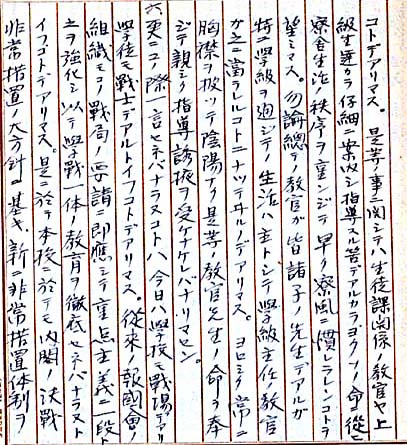 コトデアリマス。是等ノ事ニ関シテハ生徒課関係ノ教官ヤ上
級生達カラ仔細ニ案内シ指導スル筈デアルカラヨク〳〵命ニ從ヒ
寮舎生活ノ秩序ヲ重ンジテ早ク寮風ニ慣レラレンコトヲ
望ミマス。勿論總テノ教官ガ皆諸子ノ先生デアルガ
特ニ學級ヲ通ジテノ生活ハ主トシテ學級主任ノ教官
ガ之ニ當ラレルコトニナッテヰルノデアリマス。ヨロシク常ニ
胸襟ヲ披ッテ陰陽ナク是等ノ教官先生ノ命ヲ奉
ジテ親シク指導誘掖ヲ受ケナケレバナリマセン。
六、更ニコノ際一言セネバナラヌコトハ今日ハ學校モ戰場デアリ
學徒モ戰士デアルトイフコトデアリマス。從來ノ報國會ノ
組織モソノ戰局ノ要請ニ即應シテ重点主義ニ一段ト
之ヲ強化シ以テ學戰一体ノ教育ヲ徹底セネバナラヌト
イフコトデアリマス。是ニ於テ本校ニ於テモ内閣ノ決戰
非常措置ノ大方針ニ基キ新ニ非常措置体制ヲ